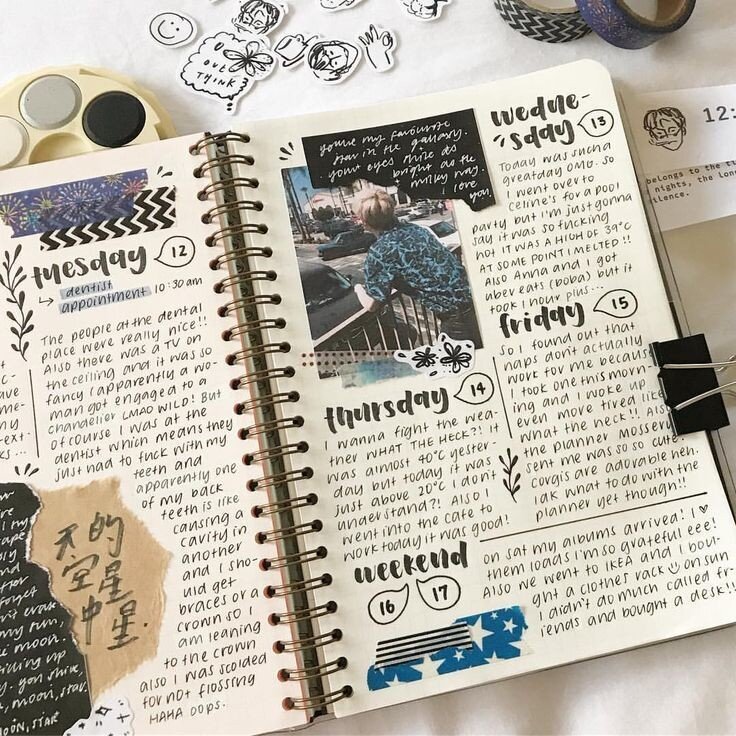 U
OUT
THINK
tuesday 12
↳ dentist
appointment 10:30am
The people at the dental
place were really nice!!
Also there was a TV on
the ceiling and it was so
fancy (apparently a wo-
man got engaged to a
chandelier LMAO WILD! BUT
OF course I was at the
dentist which means they
just had to fuck with my
teeth and
apparently one
of my back
teeth is like
causing a
cavity in
another
and I sho-
uld get
braces or a
crown so I
am leaning
to the crown
also I was scolded
for not flossing
HAHA oops.
天空中
的星星
moon.
you shine,
moon, star
MOON, STAR
you're my favourite
star in the galaxy.
your eyes shine as
bright as the
milky way.
I love
you
wedne-
sday 13
Today was such a
great day omg. so
I went over to
celine's for a pool
party but I'm just gonna
say it was so fucking
hot IT WAS A HIGH OF 39°C
AT SOME POINT I MELTED!!
Also Anna and I got
uber eats (boba) but it
took 1 hour plus...
thursday 14
I wanna fight the wea-
ther WHAT THE HECK?! It
was almost 40°C yester-
day but today it was
just above 20°C I don't
understand?! Also I
went into the cafe to
work today it was good!
friday 15
So I found out that
naps don't actually
work for me because
I took one this morn-
ing and I woke up
even more tired like
what the heck!! Also
the planner mossery
sent me was so so cute!
corgis are adorable heh.
Idk what to do with the
planner yet though!!
weekend
16 17
on sat my albums arrived! I ♡
them loads I'm so grateful eee!
Also we went to IKEA and I bou-
ght a clothes rack ☺ on sun
I didn't do much called fr-
iends and bought a desk!!
12:
belongs to the
nights, the
silence.